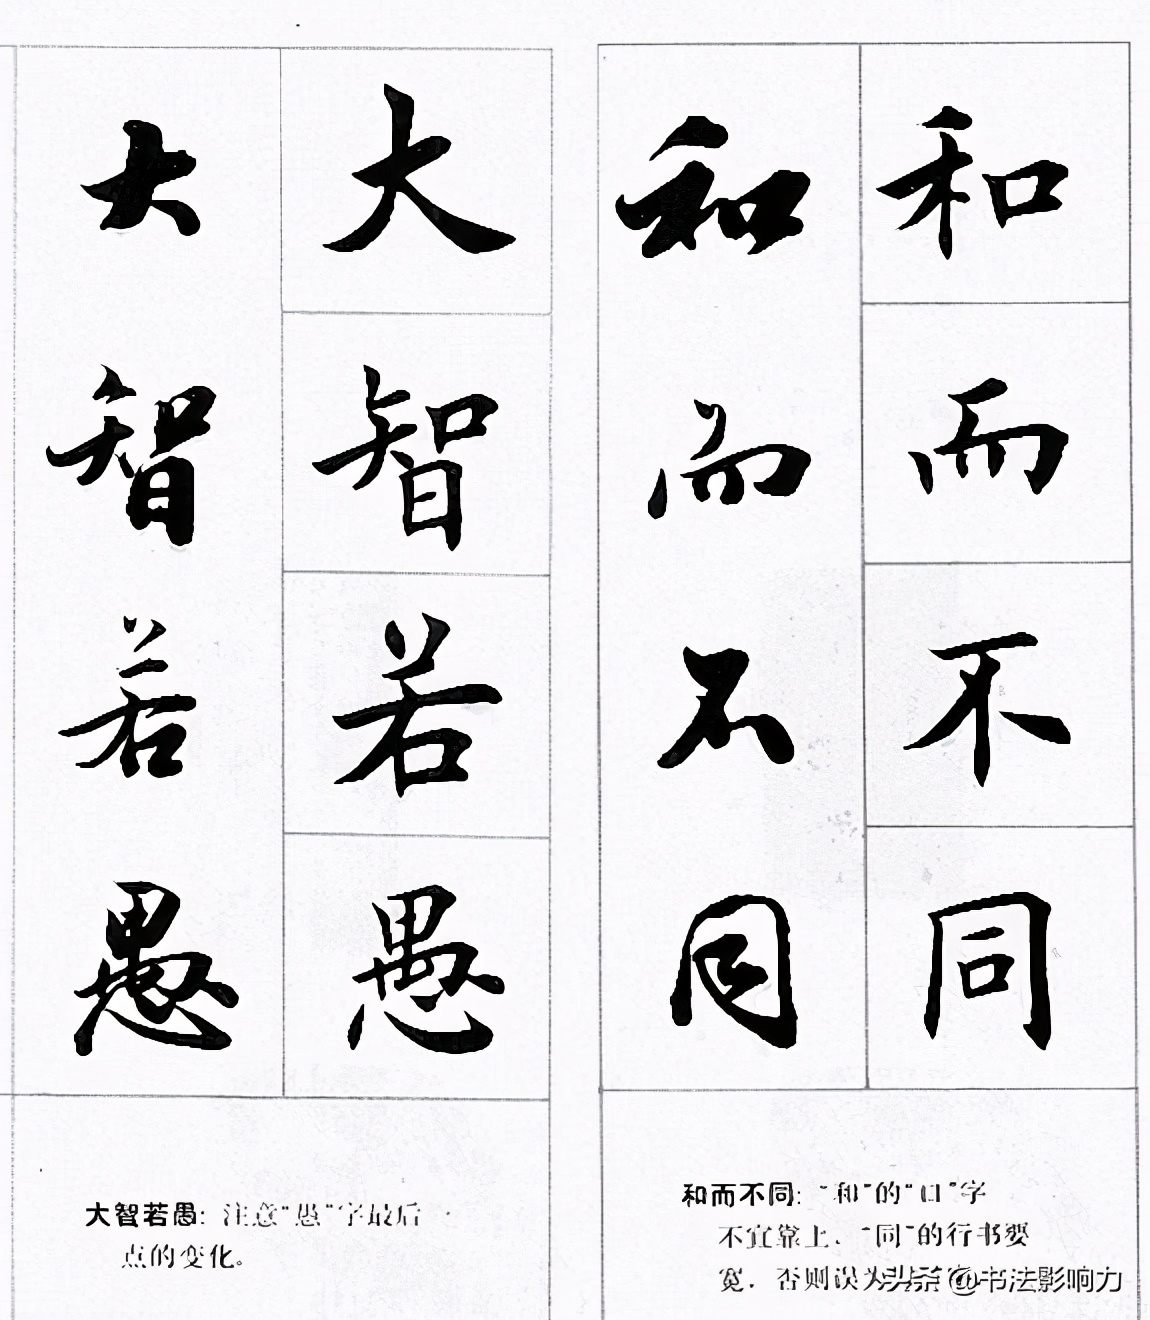 和而不同
和而不同
和而不同：“和”的“口”字
不宜靠上、“同”的行书要
宽．否则误为
大智若愚
大智若愚
大智若愚：注意“愚”字最后一
点的变化。
头条 @书法影响力